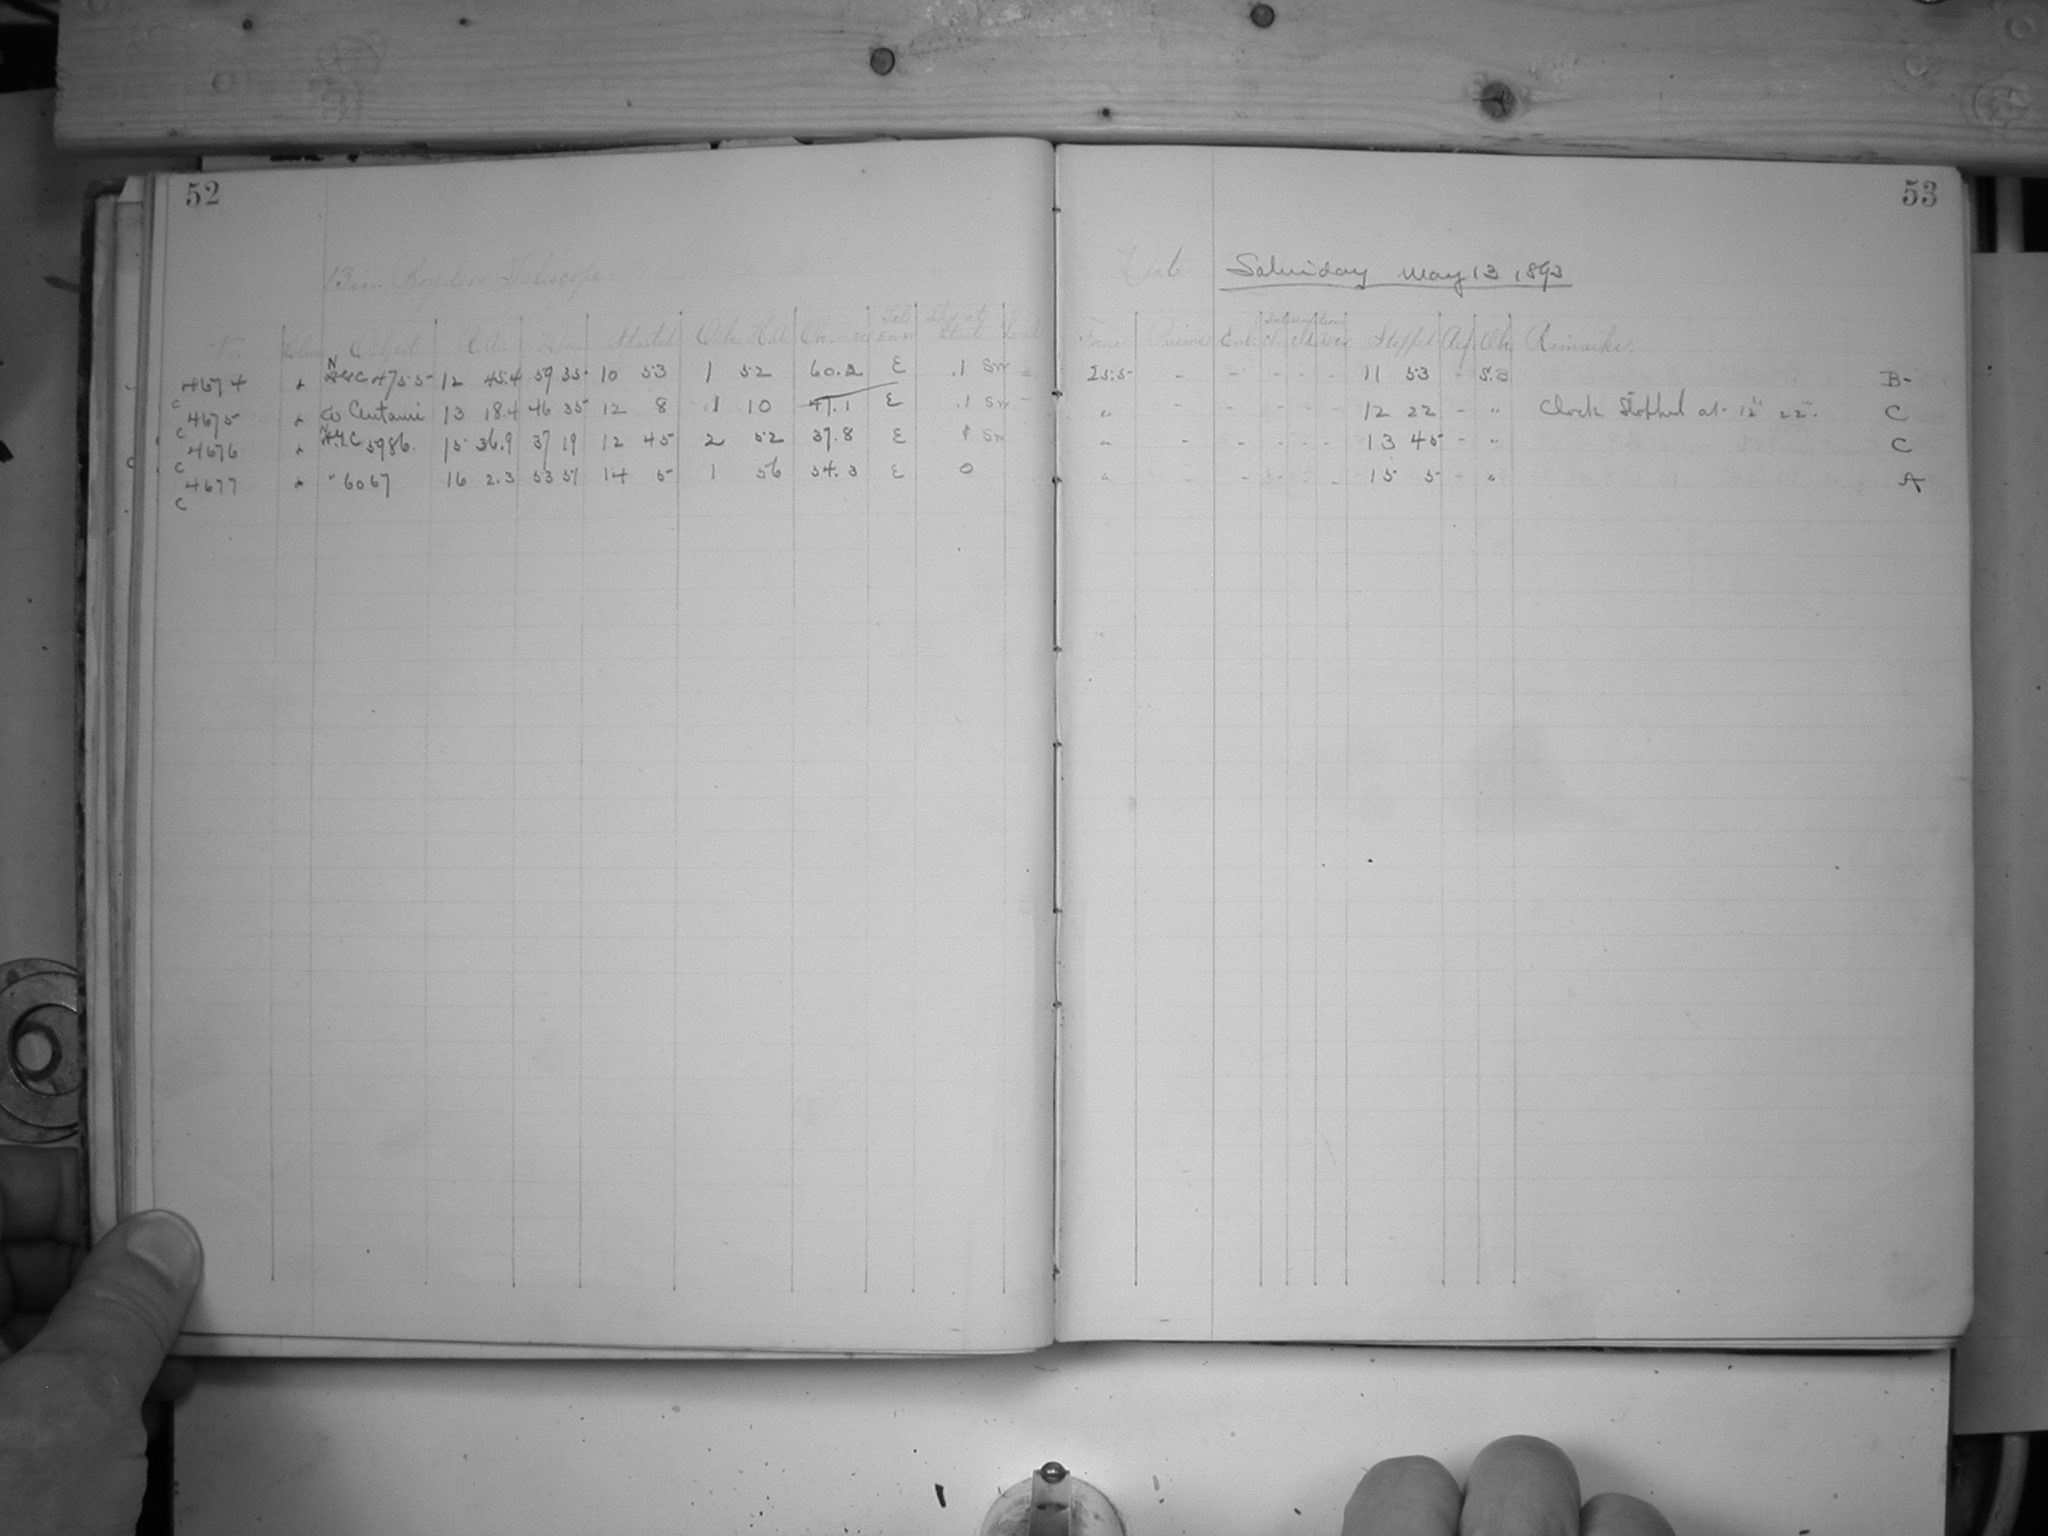 52
13 in Boyden Telescope
No. Object R.A. Dec. Started Obs. H.A. E or W Start
4674 NGC 4755 12 45.4 59 35 10 53 1 52 60.2 E .1 SW -
C
4675 ω Centauri 13 18.4 46 35 12 8 1 10 47.1 E .1 SW -
C
4676 N.G.C 5986. 15 36.9 37 19 12 45 2 52 37.8 E 1 SW
C
4677 " 6067 16 2.3 53 51 14 5 1 56 54.3 E 0
C
53
Date Saturday May 13, 1893
Focus Stopped Remarks.
- - - - - 11 53 - S.B B-
" - - - - - 12 22 - " Clock Stopped at 12h 22m. C
" - - - - - 13 45 - " C
" - - - - - 15 5 - " A